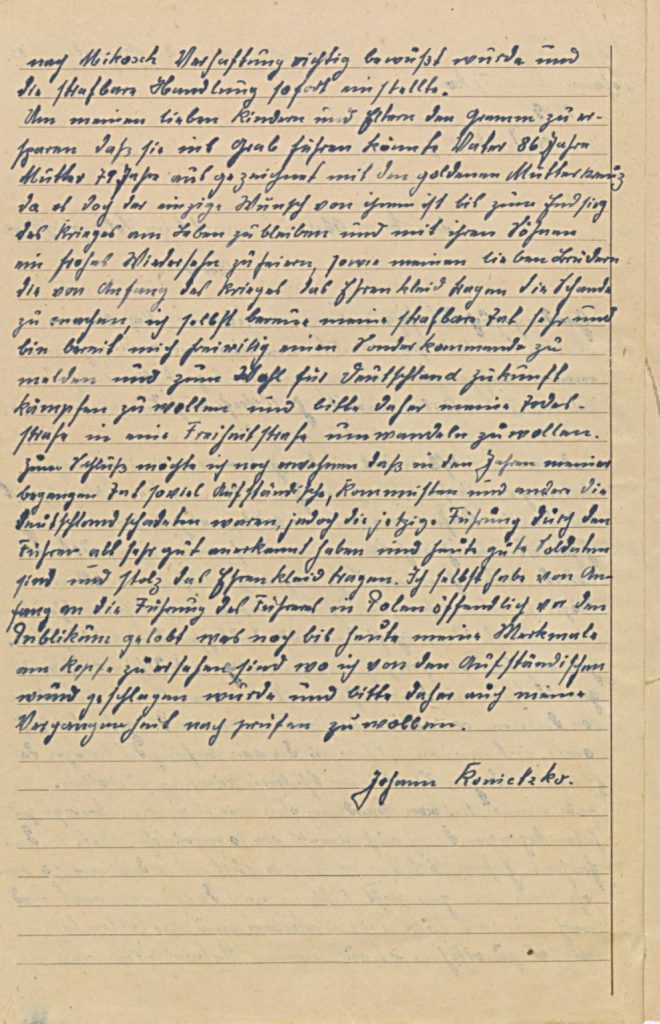 nach Mikosch Verhaftung richtig bewußt wurde und
die strafbare Handlung sofort einstellte.
Um meinen lieben Kindern und Eltern den Gramm zu er-
sparen daß sie ins Grab führen könnte Vater 86 Jahre
Mutter 79 Jahre ausgezeichnet mit den goldenen Mutterkreuz
da es doch der einzige Wunsch von ihnen ist bis zum Endsieg
des Krieges am Leben zu bleiben und mit ihren Söhnen
ein frohes Wiedersehn zu feiern, sowie meinen lieben Brüdern
die von Anfang des Krieges das Ehrenkleid tragen die Schande
zu machen, ich selbst bereue meine strafbare Tat sehr und
bin bereit mich freiwilig einen Sonderkommando zu
melden und zum Wohl für Deutschland zukunft
kämpfen zu wollen und bitte daher meine Todes-
strafe in eine Freiheitstrafe umwandeln zu wollen.
Zum Schluß möchte ich noch erwähnen daß in den Jahren meiner
begangen Tat soviel Aufständische, Kommisten und andere die
Deutschland schadeten waren, jedoch die jetzige Führung durch den
Führer als sehr gut anerkannt haben und heute gute Soldaten
sind und stolz das Ehrenkleid tragen. Ich selbst habe von An-
fang an die Führung des Führers in Polen öffendlich vor den
Publiküm gelobt was noch bis heute meine Merkmale
am Kopfe zu ersehen sind wo ich von den Aufständischen
wund geschlagen wurde und bitte daher auch meine
Vergangenheit nach prüfen zu wollen.
Johann Konietzko.